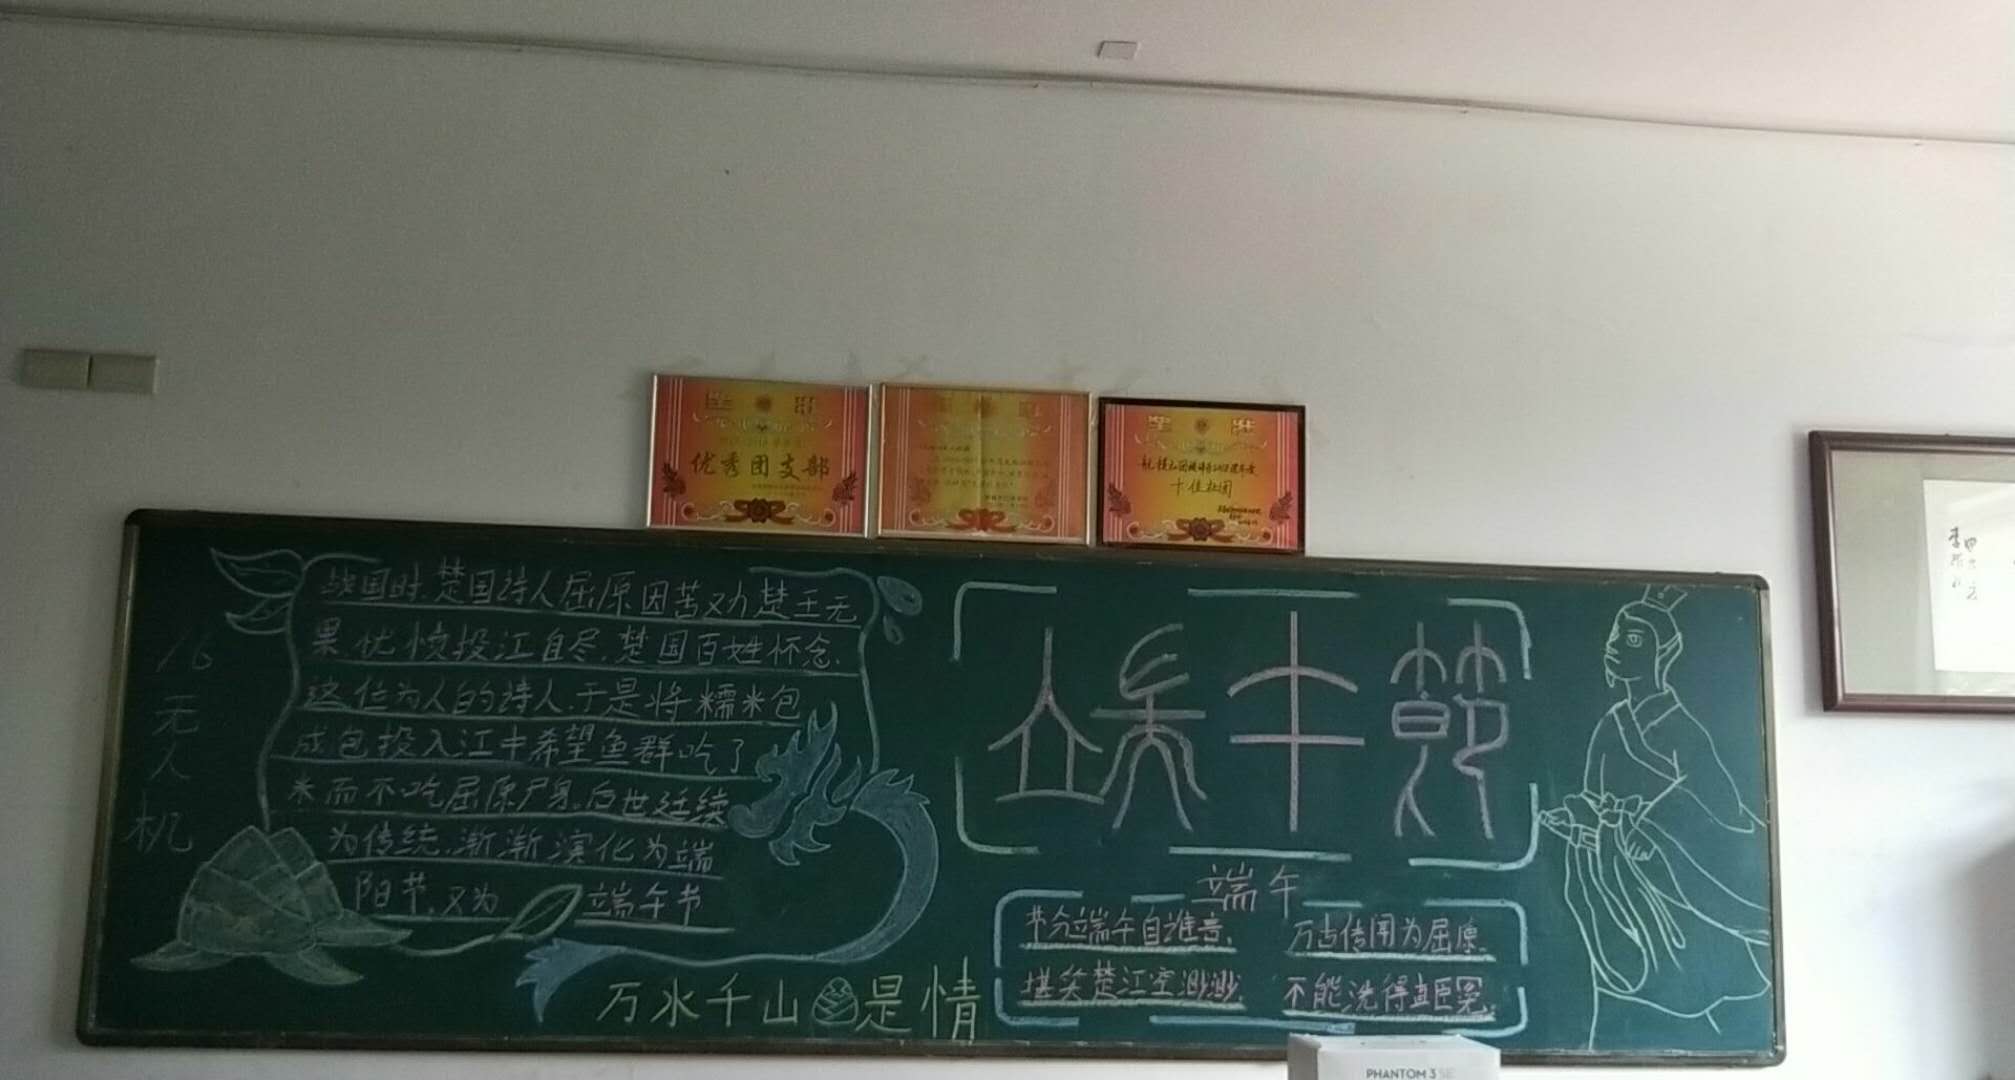 奖状
优秀团支部
十佳社团
无人机
战国时,楚国诗人屈原因苦劝楚王无
果,忧愤投江自尽,楚国百姓怀念
这位为人的诗人,于是将糯米包
成包投入江中希望鱼群吃了
米而不吃屈原尸身。后世延续
为传统,渐渐演化为端
阳节,又为端午节
万水千山是情
端午節
端午
节分端午自谁言,万古传闻为屈原。
堪笑楚江空渺渺,不能洗得直臣冤。
PHANTOM 3 SE